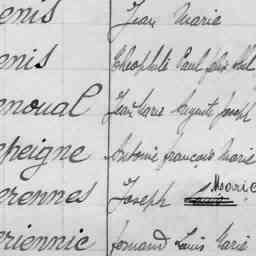 enis Jean Marie
enis Théophile Paul félix
enoual Jean Marie Auguste Joseph
epeigne Antoine françois Marie
erennes Joseph Marie
eriennic fernand Louis Marie